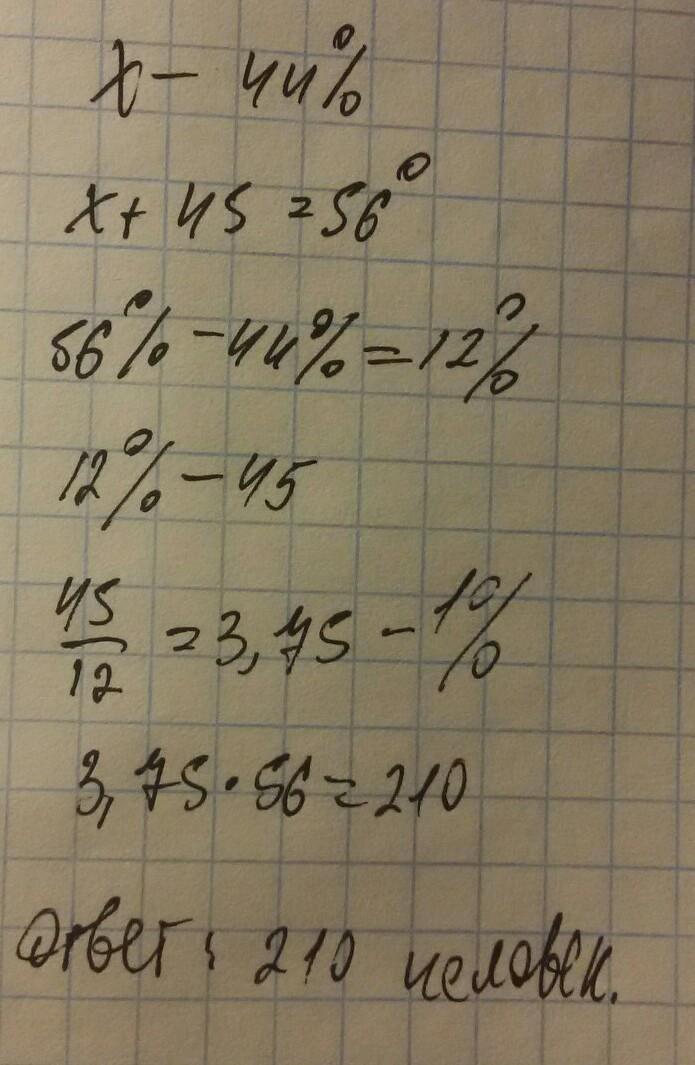 x — 44%
x + 45 = 56°
56% - 44% = 12%
12% - 45
45/12 = 3,75 - 1%
3,75 · 56 = 210
Ответ: 210 человек.